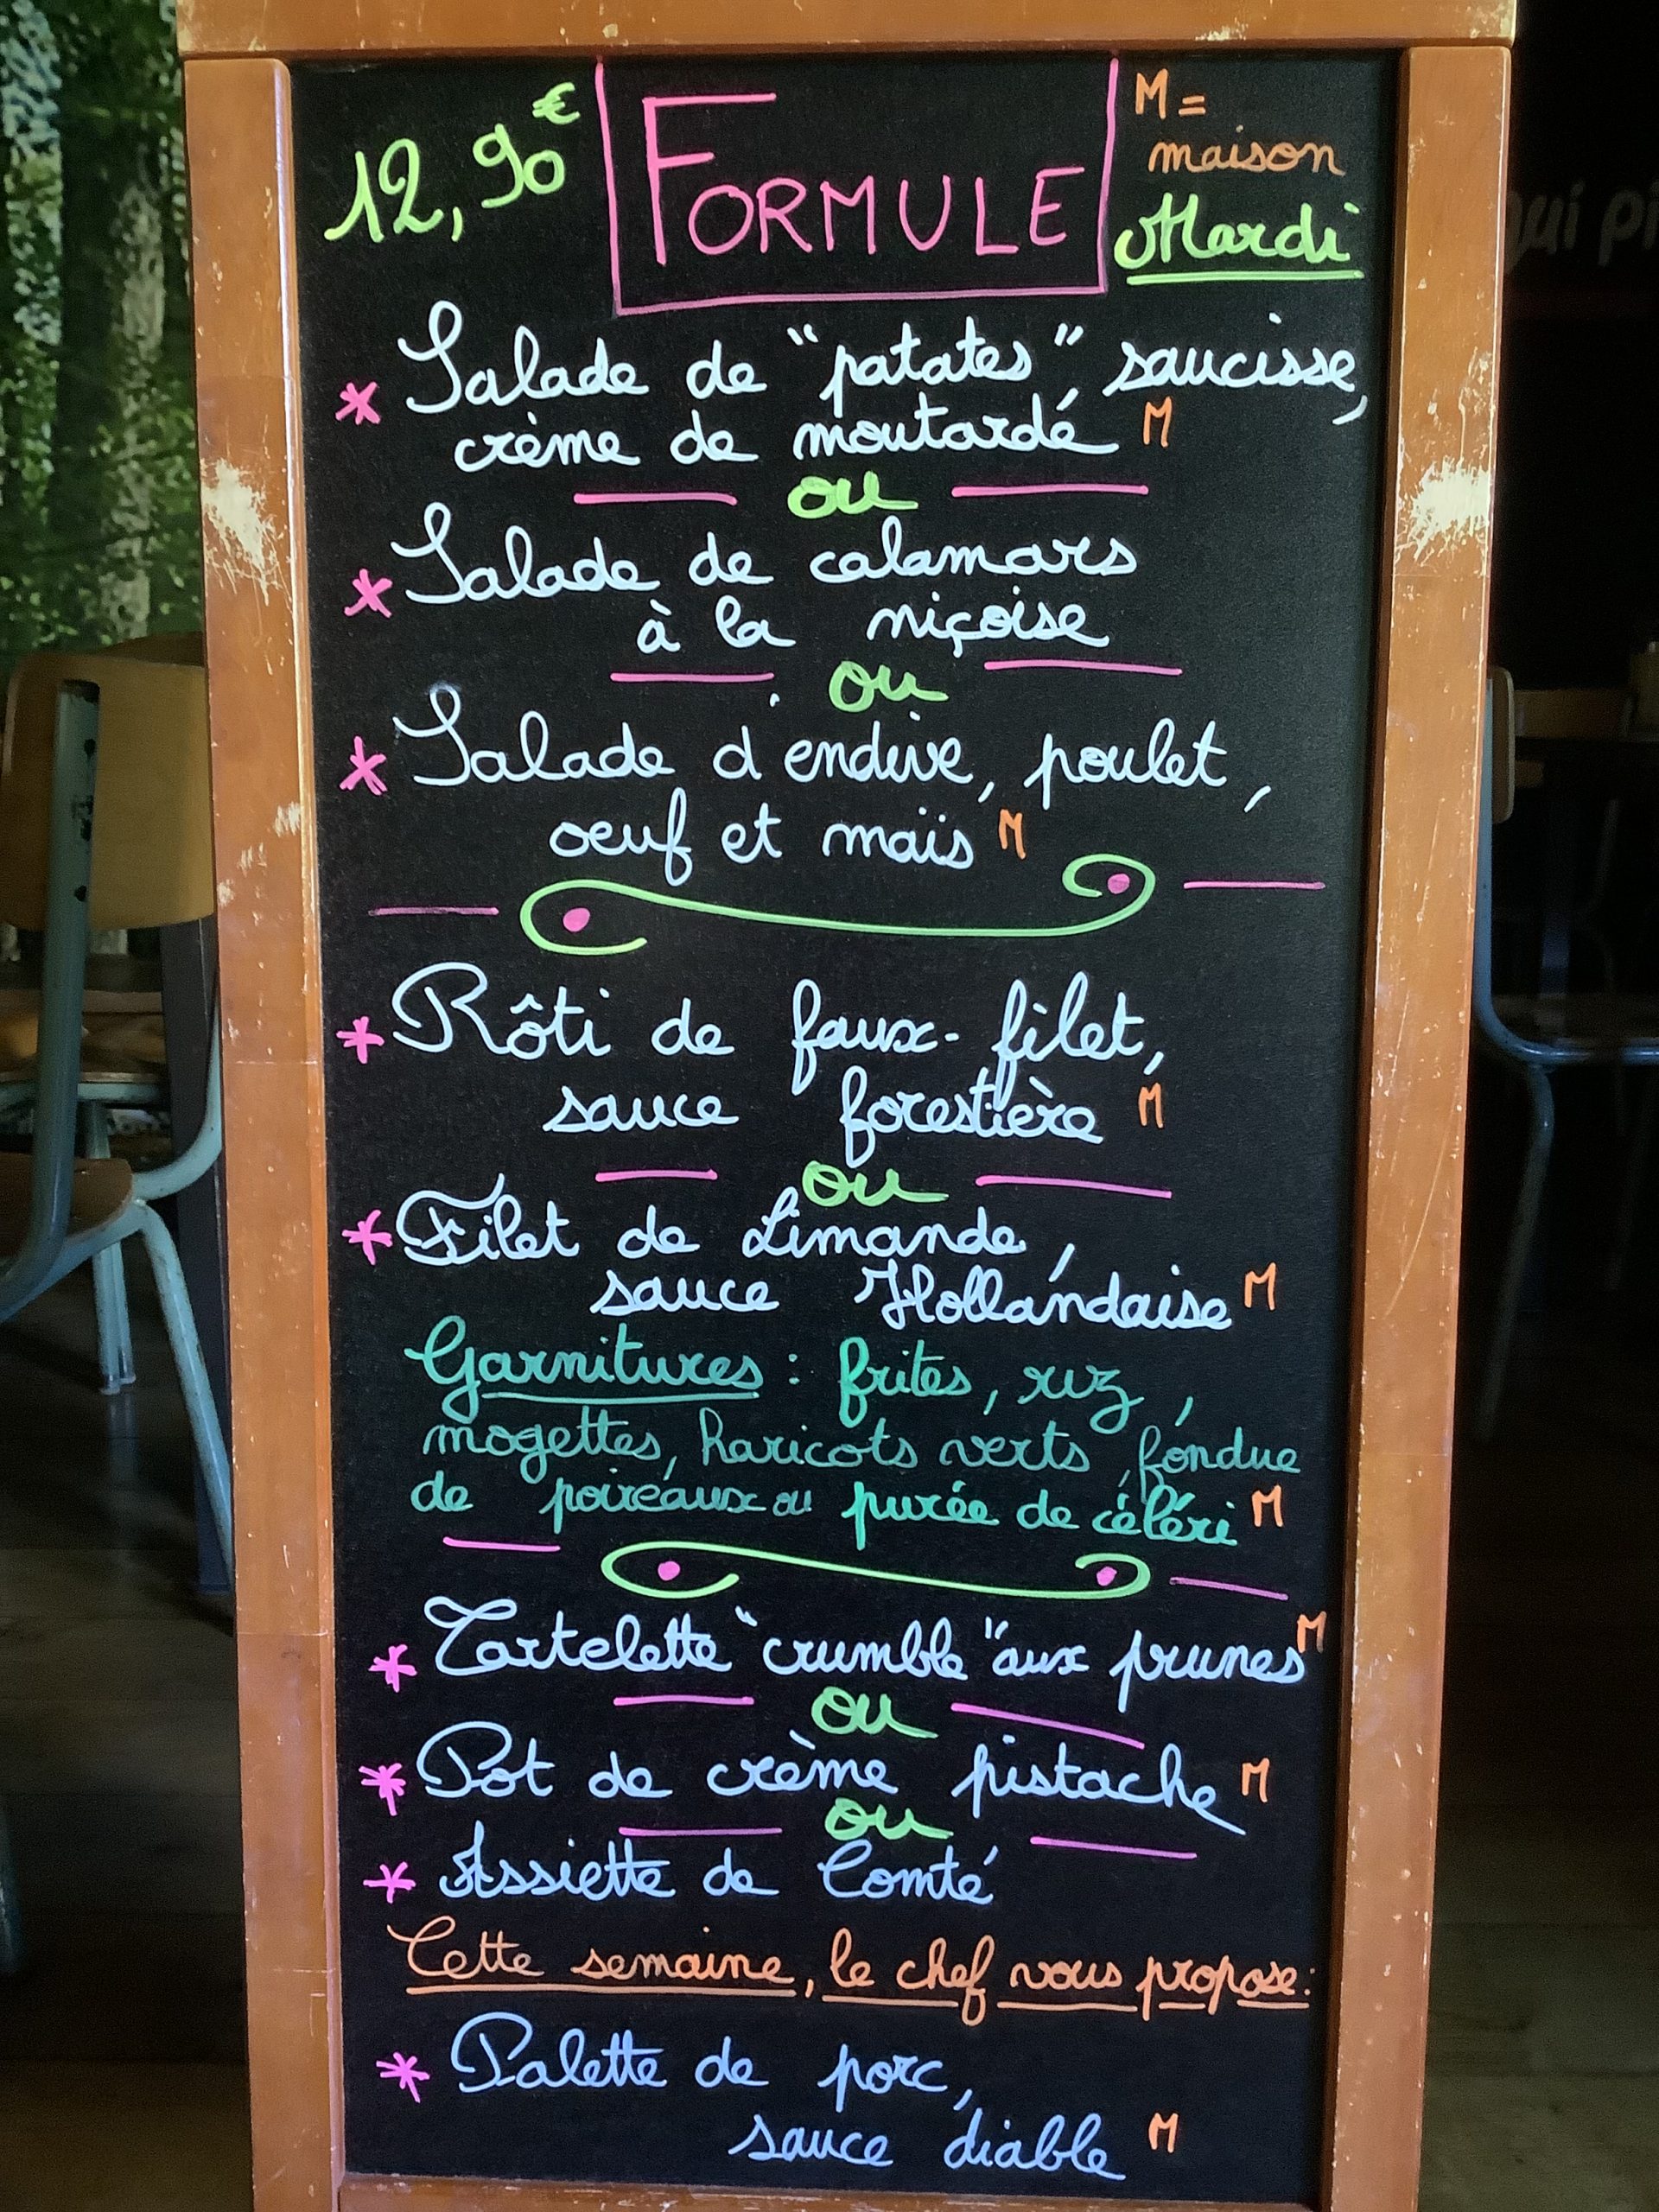 12,90€
FORMULE
M =
maison
Mardi
* Salade de "patates", saucisse,
crème de moutarde M
ou
* Salade de calamars
à la niçoise
ou
* Salade d'endive, poulet,
oeuf et maïs M
* Rôti de faux-filet,
sauce forestière M
ou
* Filet de Limande,
sauce Hollandaise M
Garnitures : frites, riz,
mogettes, haricots verts, fondue
de poireaux ou purée de céléri M
* Tartelette "crumble" aux prunes M
ou
* Pot de crème pistache M
ou
* Assiette de Comté
Cette semaine, le chef vous propose :
* Palette de porc,
sauce diable M
qui pi